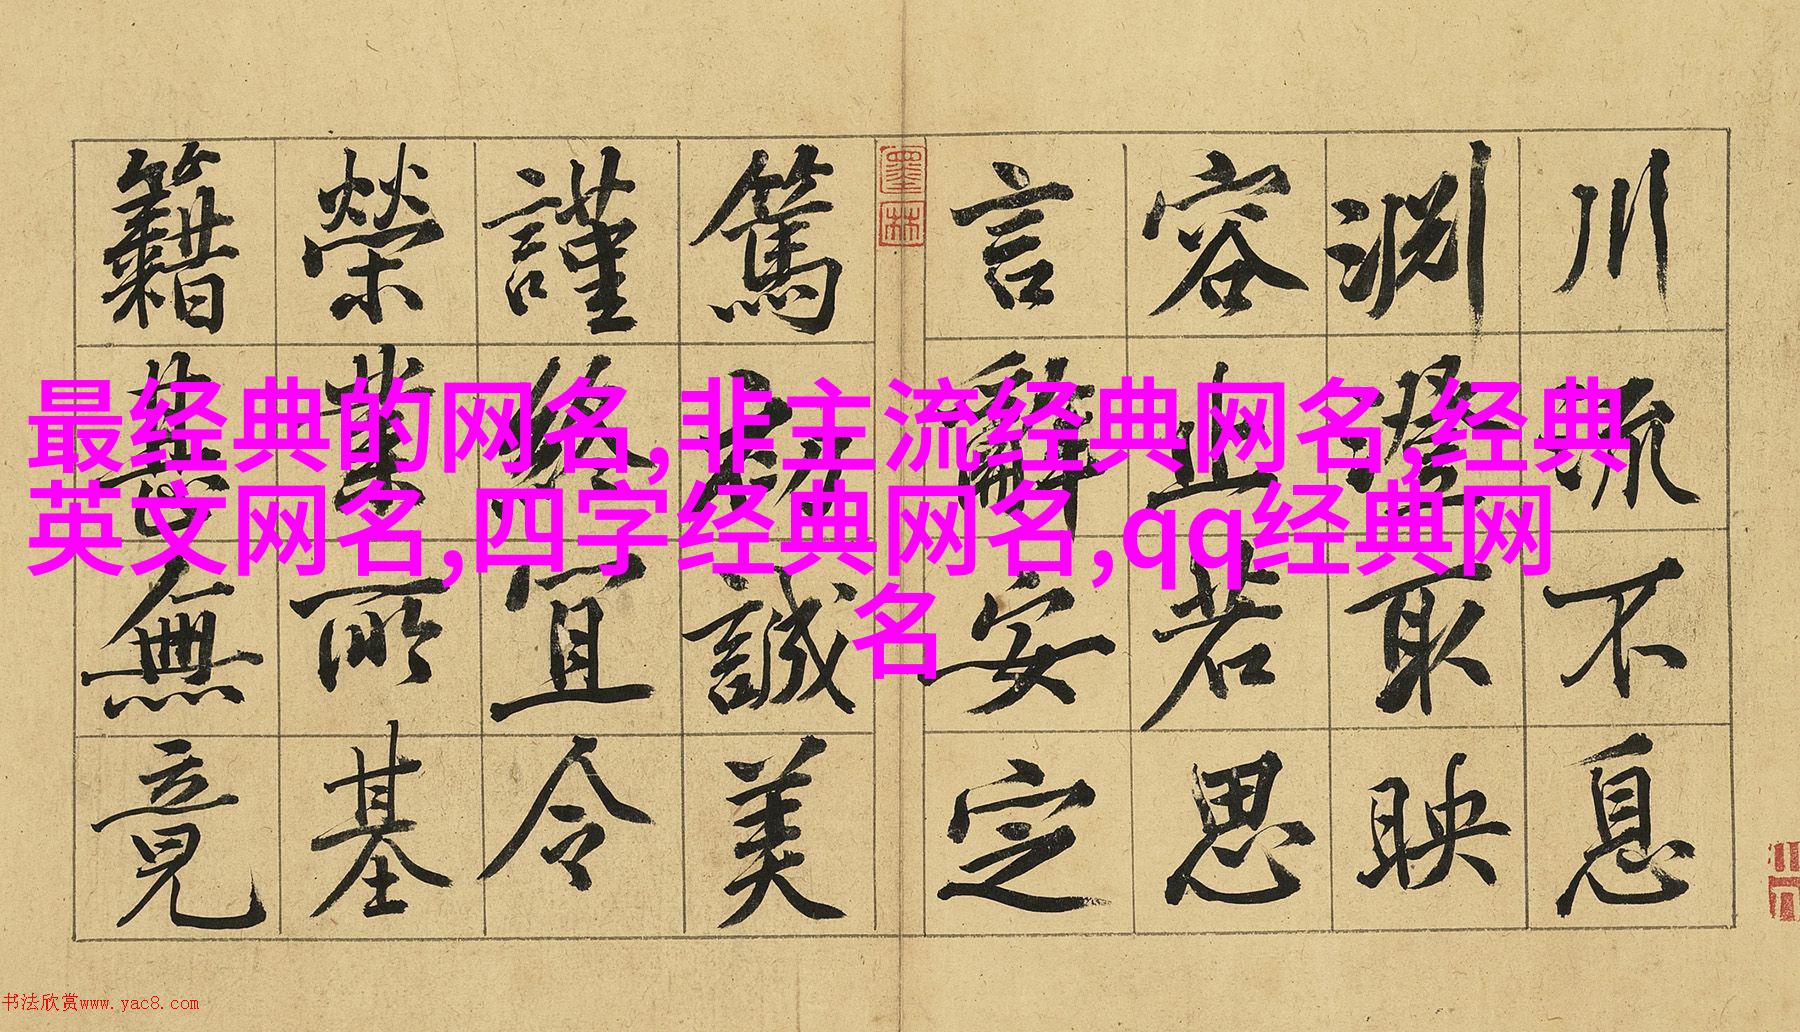 川流不息
淵澄取映
容止若思
言辭安定
墨林
篤初誠美
謹終宜令
榮業所基
籍甚無竟
最经典的网名,非主流经典网名,经典
英文网名,四字经典网名,qq经典网
名
书法欣赏www.yac8.com